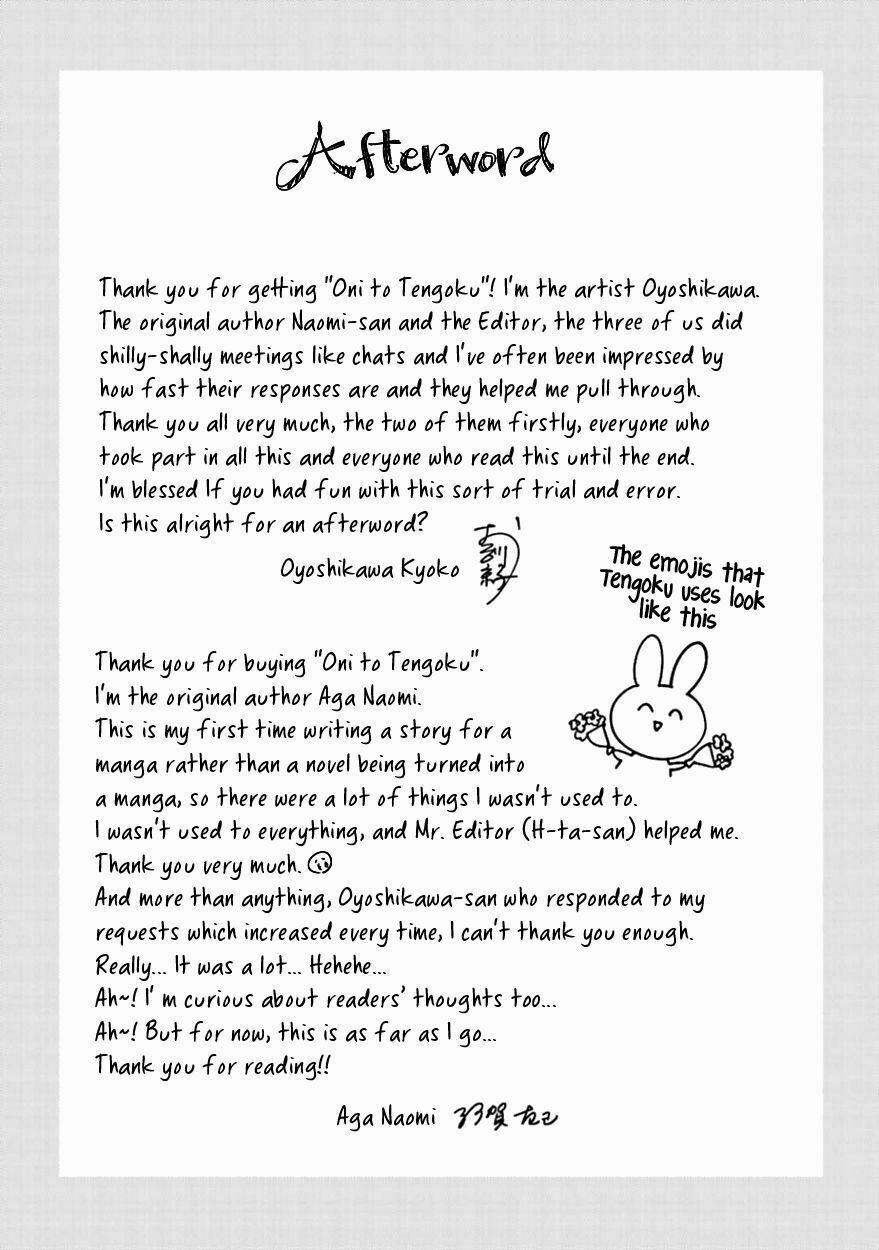 Afterword
Thank you for getting "Oni to Tengoku"! I'm the artist Oyoshikawa.
The original author Naomi-san and the Editor, the three of us did
shilly-shally meetings like chats and I've often been impressed by
how fast their responses are and they helped me pull through.
Thank you all very much, the two of them firstly, everyone who
took part in all this and everyone who read this until the end.
I'm blessed If you had fun with this sort of trial and error.
Is this alright for an afterword?
Oyoshikawa Kyoko
The emojis that
Tengoku uses look
like this
Thank you for buying "Oni to Tengoku".
I'm the original author Aga Naomi.
This is my first time writing a story for a
manga rather than a novel being turned into
a manga, so there were a lot of things I wasn't used to.
I wasn't used to everything, and Mr. Editor (H-ta-san) helped me.
Thank you very much.
And more than anything, Oyoshikawa-san who responded to my
requests which increased every time, I can't thank you enough.
Really... It was a lot... Hehehe...
Ah~! I' m curious about readers' thoughts too...
Ah~! But for now, this is as far as I go...
Thank you for reading!!
Aga Naomi